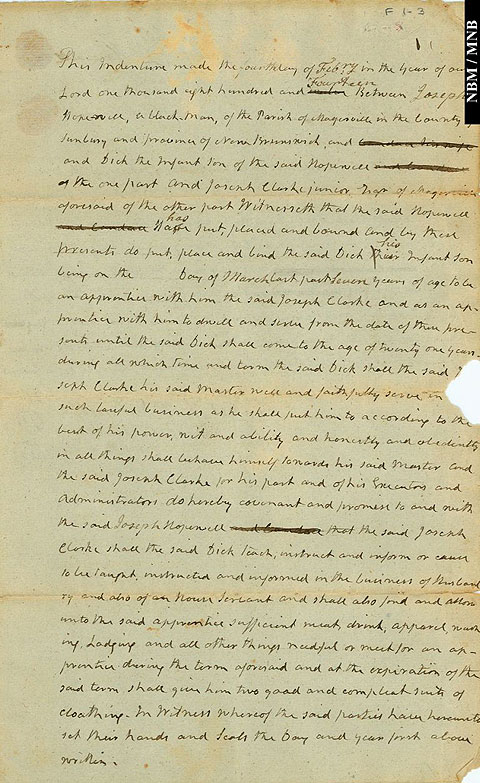 F 1-3
11
NBM / MNB
This Indenture made the fourth day of Febry in the Year of our
Fourteen
Lord one thousand eight hundred and Between Joseph
Hopewell, a black man, of the Parish of Maugerville in the County of
Sunbury and province of New Brunswick, and
and Dick the Infant Son of the said Hopewell
of the one part And Joseph Clarke junior Esqr of Maugerville
aforesaid of the other part Witnesseth that the said Hopewell
has
put, placed and bound and by these
his
presents do put, place and bind the said Dick Infant Son
being on the Day of March last past Seven years of age to be
an apprentice with him the said Joseph Clarke and as an ap-
prentice with him to dwell and serve from the date of these pre-
sents until the said Dick shall come to the age of twenty one years
during all which time and term the said Dick shall the said Jo
seph Clarke his said Master well and faithfully serve in
such lawful business as he shall put him to according to the
best of his power, wit and ability and honestly and obediently
in all things shall behave himself towards his said Master and
the said Joseph Clarke for his part and of his Executors and
Administrators do hereby covenant and promess to and with
the said Joseph Hopewell that the said Joseph
Clarke shall the said Dick teach, instruct and inform or cause
to be taught, instructed and informed in the business of Husband
ry and also of an House Servant and shall also find and allow
unto the said apprentice sufficient meat, drink, apparel, wash
ing, Lodging and all other things needful or meet for an ap-
prentice during the term aforesaid and at the expiration of the
said term shall give him two good and compleat suits of
cloathing. In Witness whereof the said parties have hereunto
set their hands and Seals the Day and year first above
written.